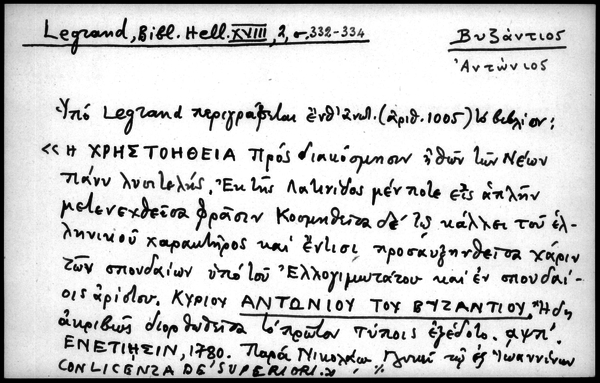 Legrand, Bibl. Hell. XVIII, 2, σ. 332-334
Βυζάντιος
Ἀντώνιος
Ὑπό Legrand περιγράφεται ἔνθ' ἀνωτ. (ἀριθ. 1005) τό βιβλίον:
«Η ΧΡΗΣΤΟΗΘΕΙΑ Πρός διακόσμησιν ἠθῶν τῶν Νέων
πάνυ λυσιτελής, Ἐκ τῆς Λατινίδος μέν ποτε εἰς ἁπλῆν
μετενεχθεῖσα φράσιν Κοσμηθεῖσα δέ τῷ κάλλει τοῦ ἑλ-
ληνικοῦ χαρακτῆρος καί ἔν τισι προσαυξηνθεῖσα χάριν
τῶν σπουδαίων ὑπό τοῦ Ἐλλογιμωτάτου καί ἐν σπουδαί-
οις ἀρίστου. ΚΥΡΙΟΥ ΑΝΤΩΝΙΟΥ ΤΟΥ ΒΥΖΑΝΤΙΟΥ, Ἤδη
ἀκριβῶς διορθωθεῖσα τό πρῶτον τύποις ἐξέδοτο. αψπ'.
ΕΝΕΤΙΗΣΙΝ, 1780. Παρά Νικολάῳ Γλυκεῖ τῷ ἐξ Ἰωαννίνων
CON LICENZA DE' SUPERIORI.»